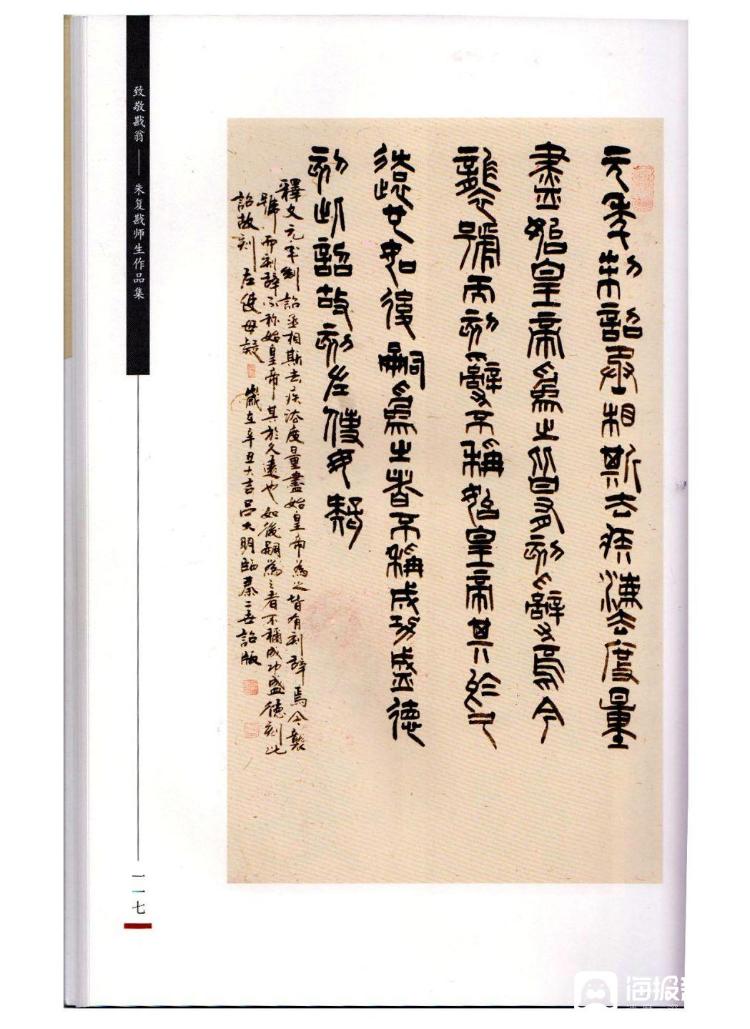 元年制詔丞相斯去疾灋度量
盡始皇帝為之皆有刻辭焉今
襲號而刻辭不稱始皇帝其於久
遠也如後嗣為之者不稱成功盛德
刻此詔故刻左使毋疑
釋文元年制詔丞相斯去疾法度量盡始皇帝為之皆有刻辭焉今襲
號而刻辭不称始皇帝其於久遠也如後嗣為之者不稱成功盛德刻此
詔故刻左使毋疑 歲在辛丑大吉吕大臨秦二世詔版
致敬戡翁——朱复戡师生作品集
一一七
海报